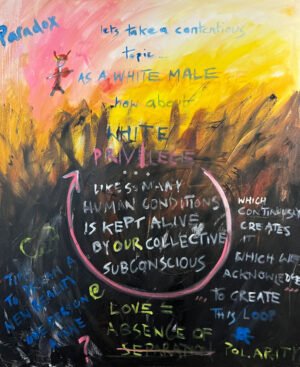 Paradox
lets take a contentious
topic...
AS A WHITE MALE
how about
WHITE
PRIVILEGE
...
LIKE SO MANY
HUMAN CONDITIONS
IS KEPT ALIVE
BY OUR COLLECTIVE
SUBCONSCIOUS
WHICH
CONTINUOUSLY
CREATES
IT
WHICH WE
ACKNOWLEDGE
TO CREATE
THIS LOOP
TIME
TO
NEW REALITY
LOVE =
ABSENCE OF
SEPARATION
POLARITY